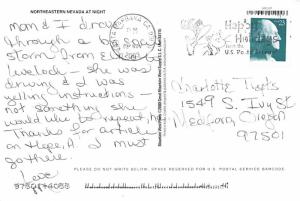 NORTHEASTERN NEVADA AT NIGHT
Mom & I drove
through a snow
storm from Elko to
Lovelock - she was
driving & I was
yelling instructions -
not something she
would like to repeat, ha
Thanks for article
on Hope, A. I must
go there.
Love
Happy
Holidays
from the
U.S. Postal Service
Charlotte
1549 S. Ivy St
Oregon
97501
PLEASE DO NOT WRITE BELOW THIS LINE. SPACE RESERVED FOR U.S. POSTAL SERVICE BARCODE.